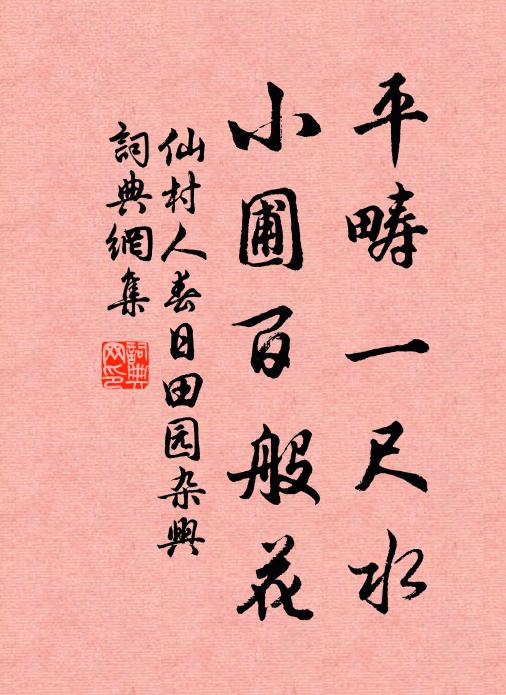 平畴一尺水
小圃百般花
仙村人春日田园杂興
詞典網集
詞典網印